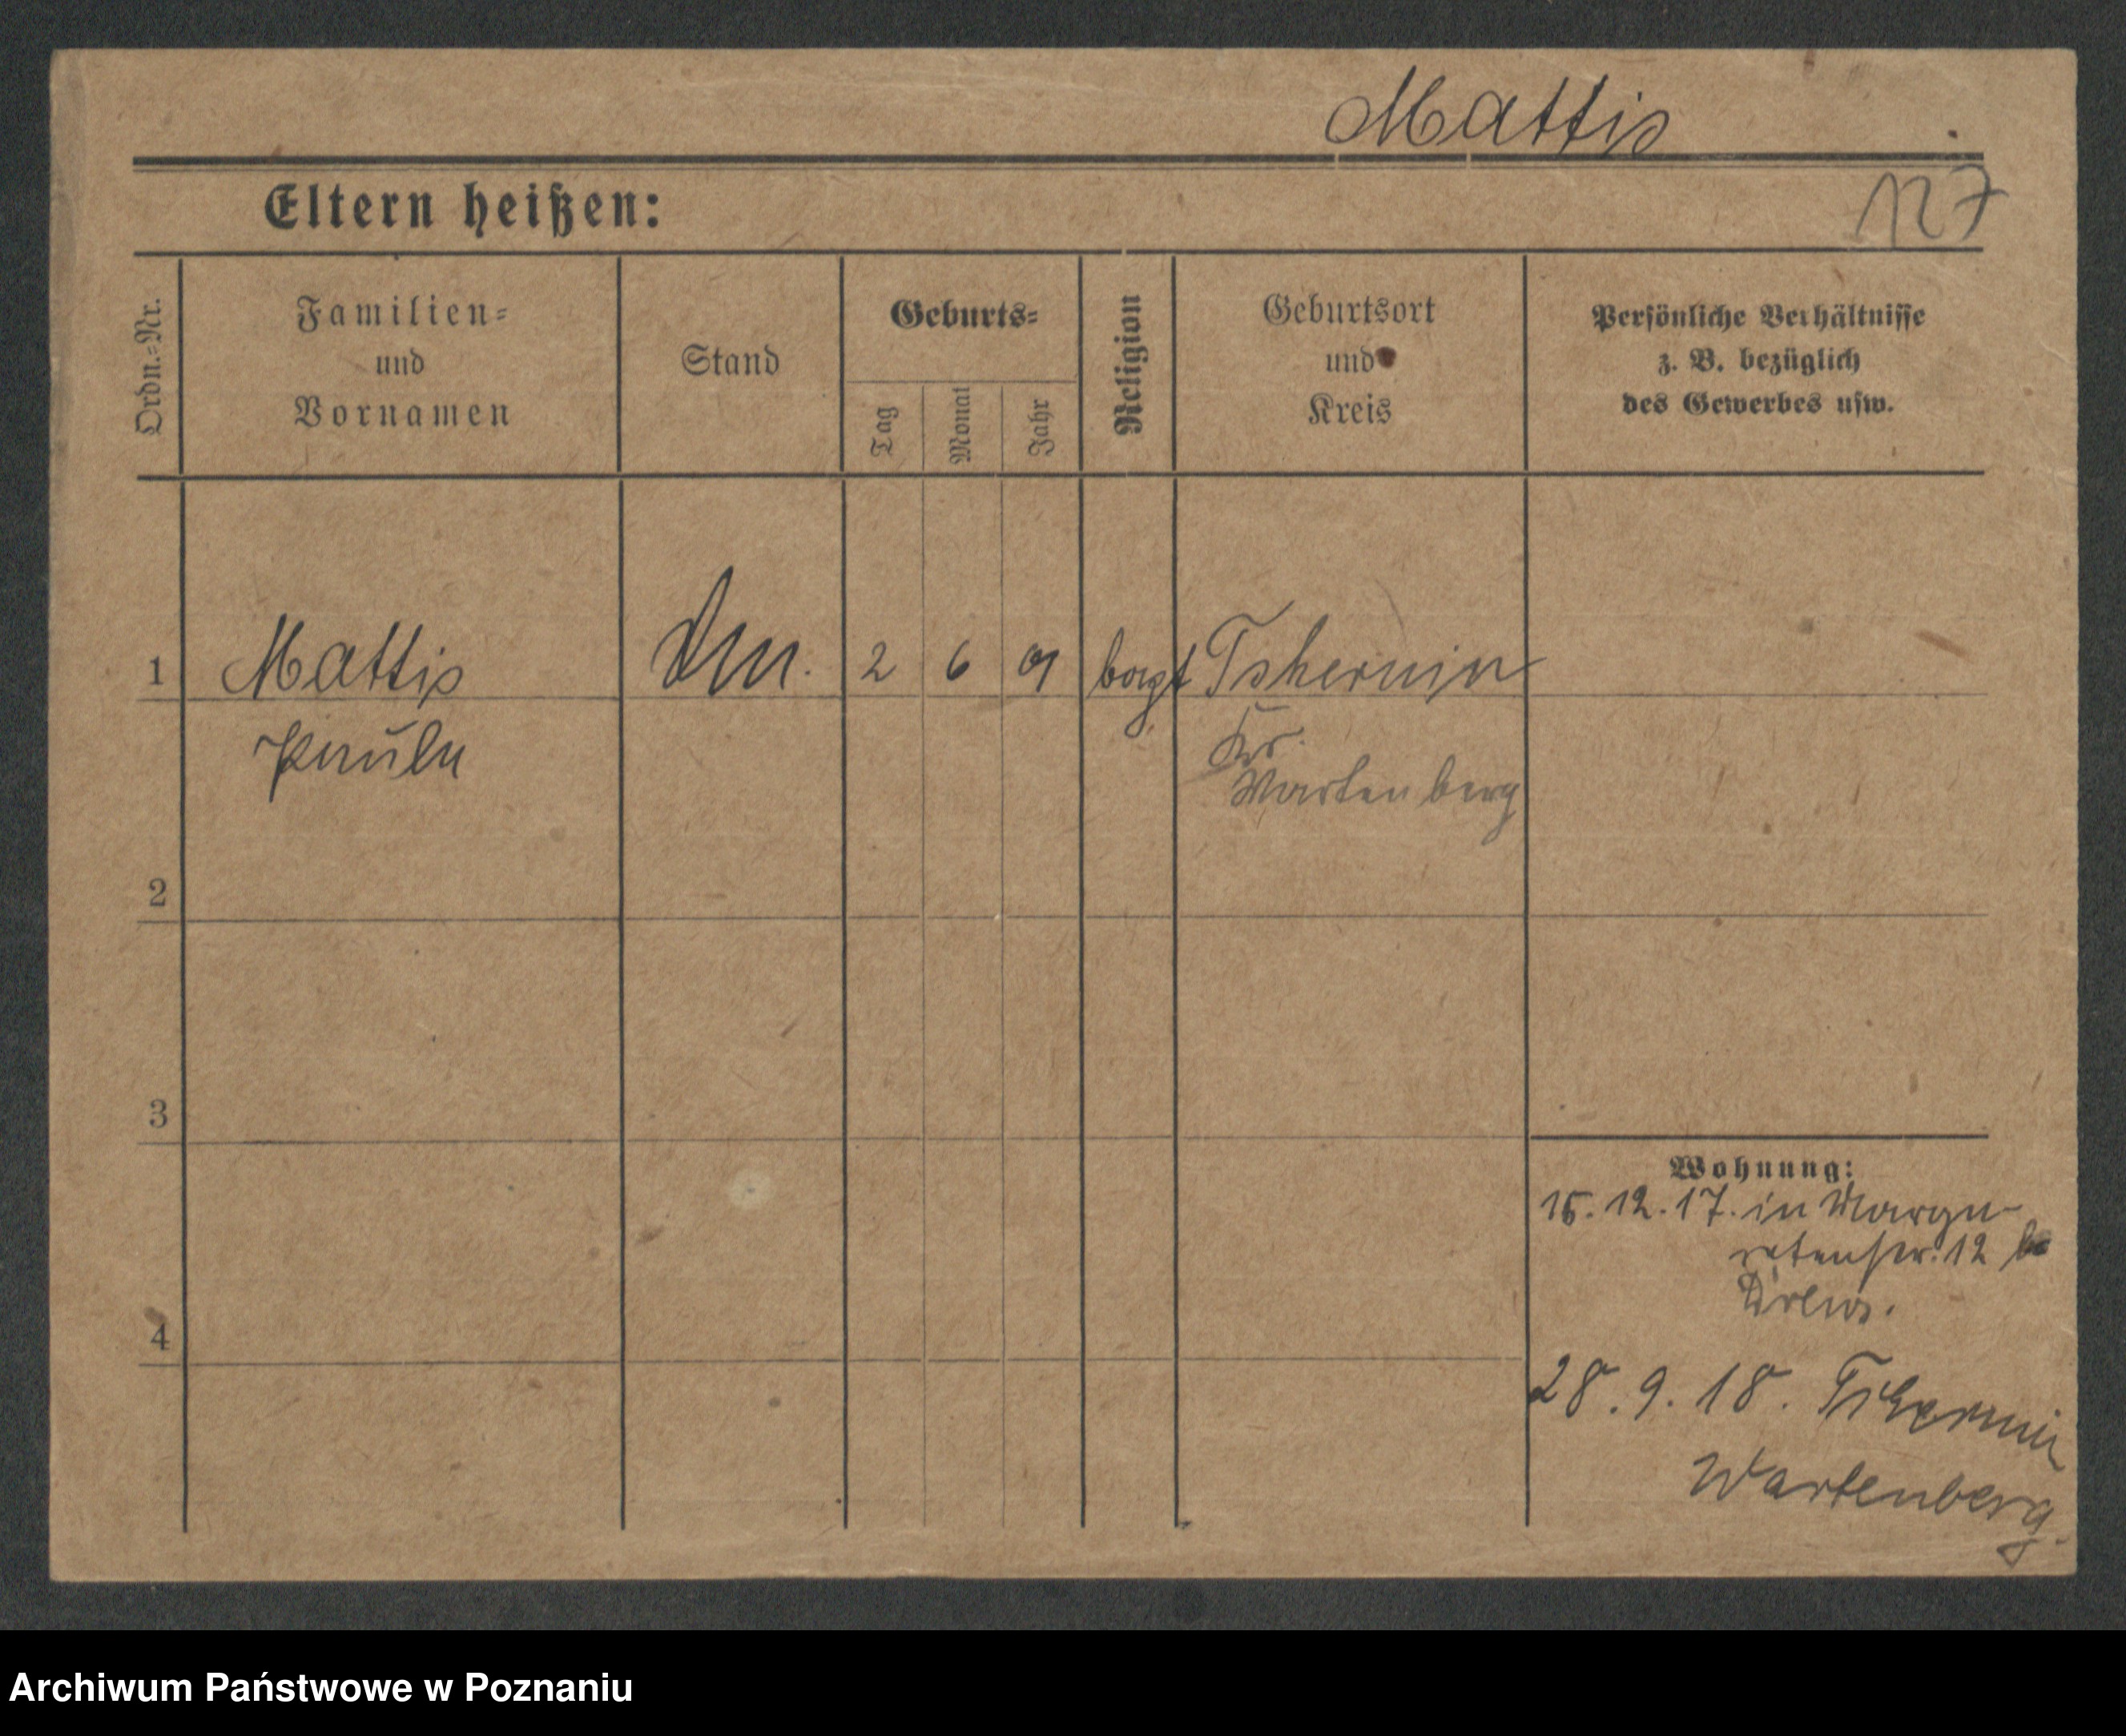 Mattis
127
Eltern heißen:
Ordn.=Nr.
Familien=
und
Vornamen
Stand
Geburts=
Tag
Monat
Jahr
Religion
Geburtsort
und
Kreis
Persönliche Verhältnisse
z. B. bezüglich
des Gewerbes usw.
1 Mattis 2 6 01 Tshermin
Paula
Kr.
Wartenberg
2
3
4
Wohnung:
15.12.17. in Marga-
retenstr. 12 b
Drews.
28.9.18. Tshermin
Wartenberg.
Archiwum Państwowe w Poznaniu